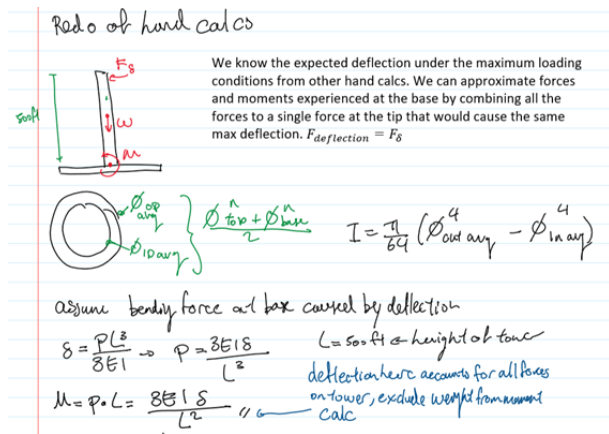 Redo of hand calcs
We know the expected deflection under the maximum loading
conditions from other hand calcs. We can approximate forces
and moments experienced at the base by combining all the
forces to a single force at the tip that would cause the same
max deflection. F_deflection = F_δ
F_δ
500ft
W
M
Ø_OD avg
Ø_ID avg
(Ø^n_top + Ø^n_base) / 2
I = π/64 (Ø^4_out avg - Ø^4_in avg)
assume bending force at base caused by deflection
δ = PL³/3EI → P = 3EIδ/L³
L = 500 ft ← height of tower
M = P·L = 3EIδ/L²
deflection here accounts for all forces
on tower, exclude weight from moment
calc